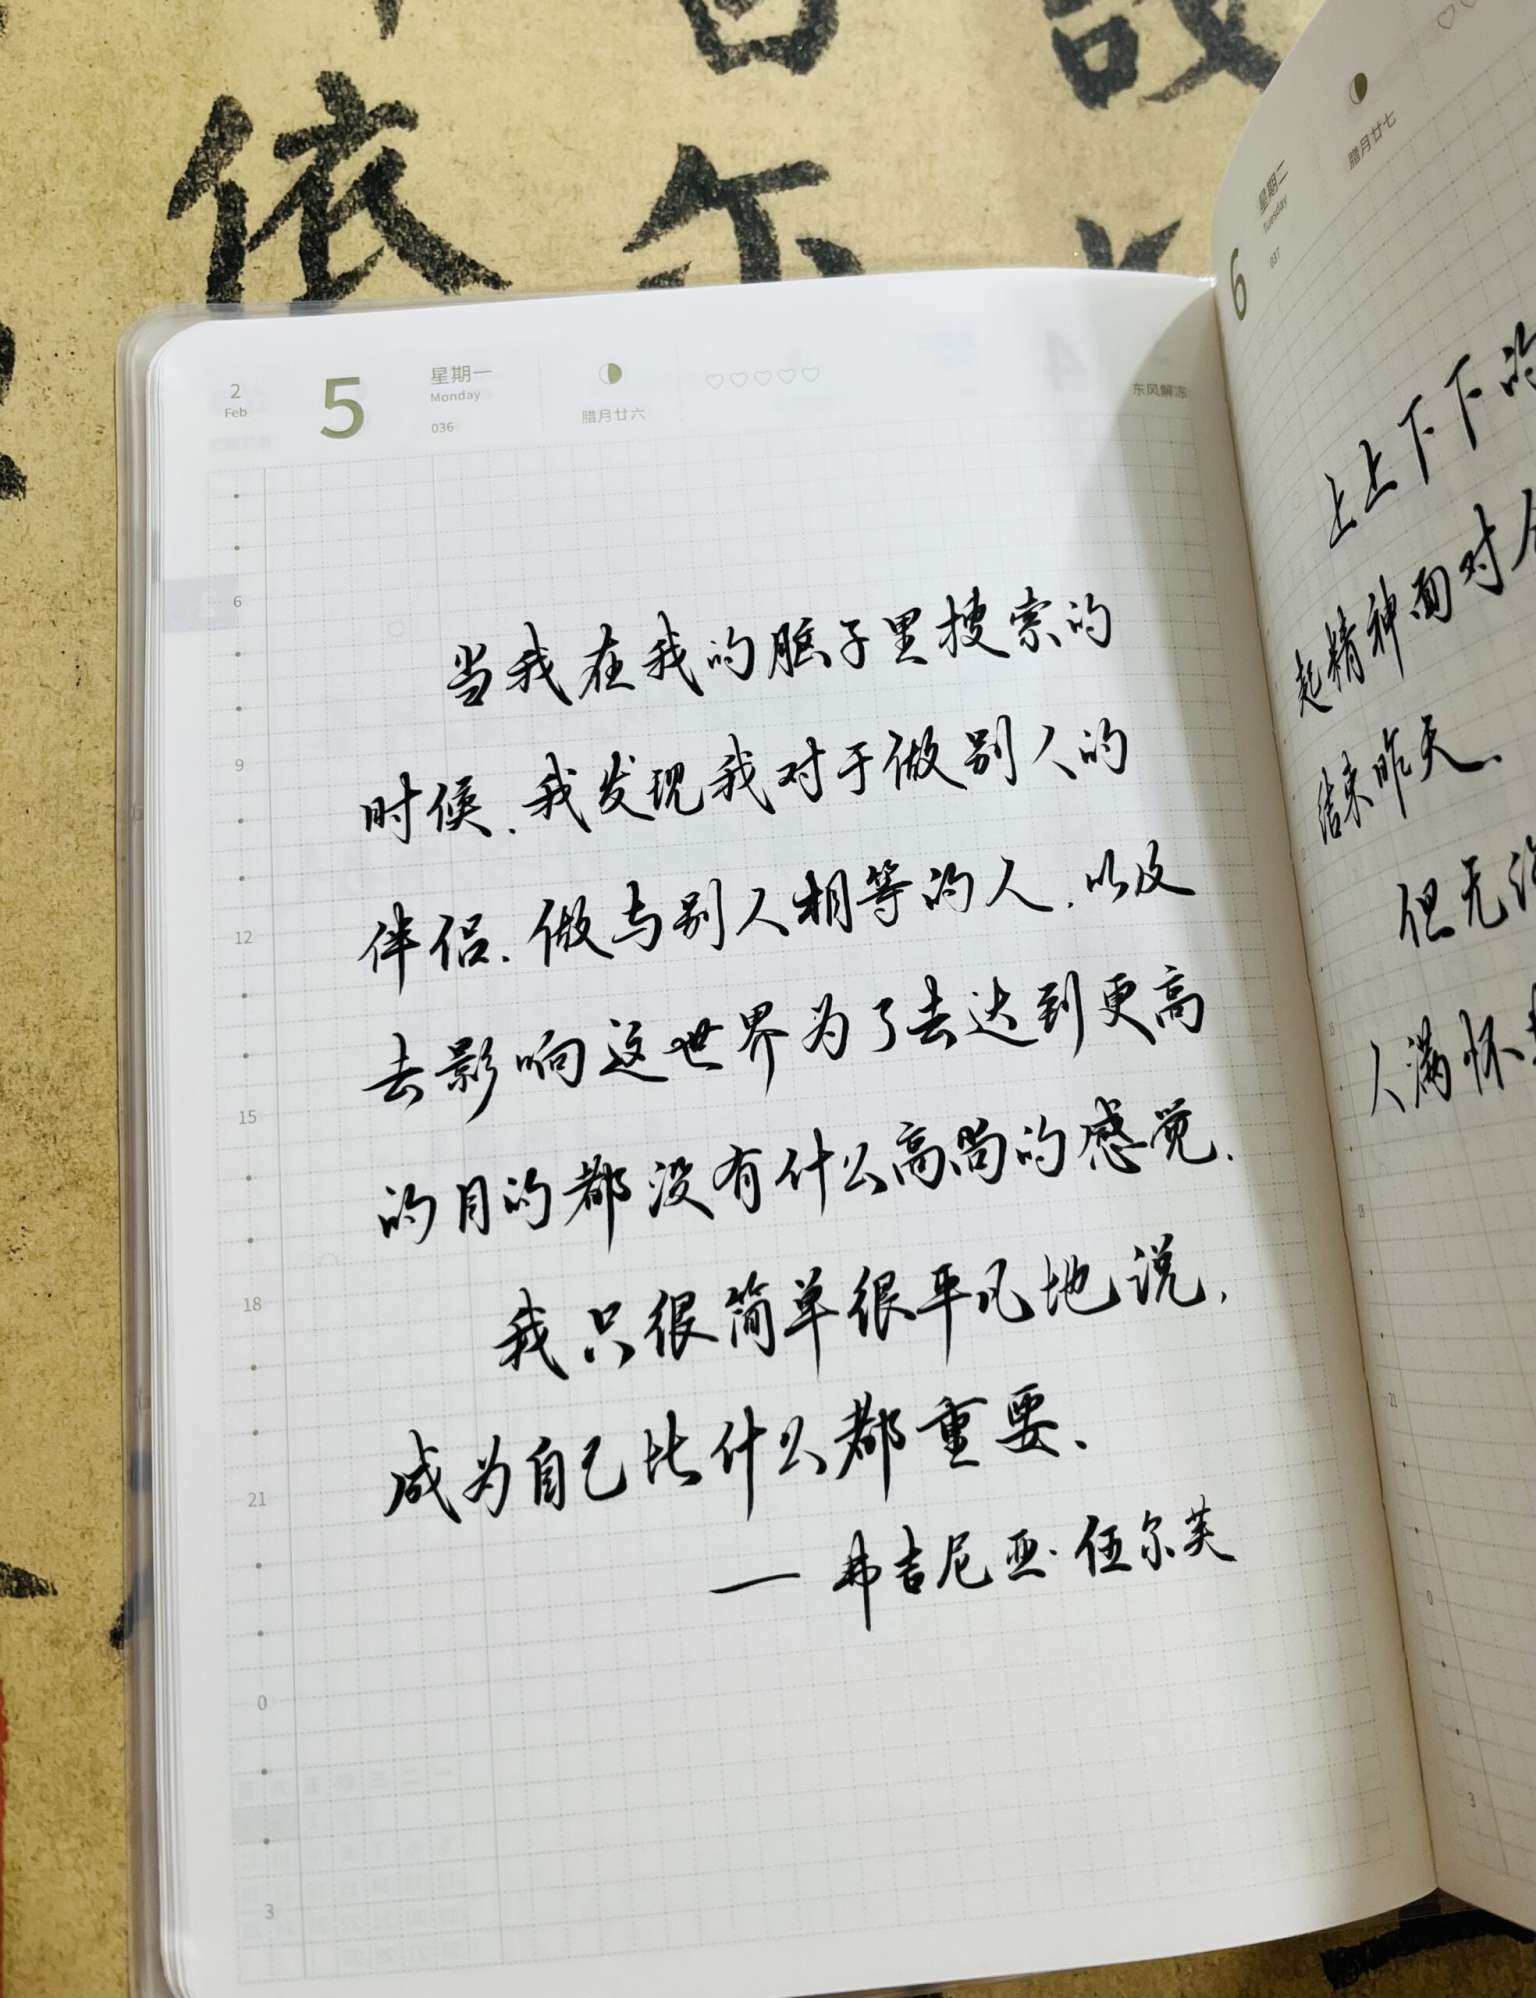 依
尔
2
Feb
5
星期一
Monday
036
腊月廿六
东风解冻
6
9
12
15
18
21
0
3
当我在我的脑子里搜索的
时候，我发现我对于做别人的
伴侣，做与别人相等的人，以及
去影响这世界为了去达到更高
的目的都没有什么高尚的感觉，
我只很简单很平凡地说，
成为自己比什么都重要、
— 弗吉尼亚·伍尔芙
6
星期二
Tuesday
037
腊月廿七
上上下下的
起精神面对
结束昨天、
但无
人满怀
21
0
3